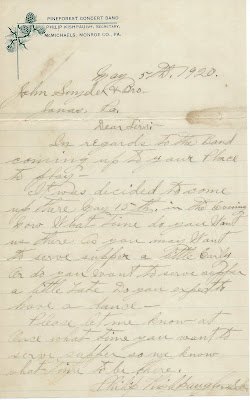 PINEFOREST CONCERT BAND
PHILIP KISHPAUGH, SECRETARY,
McMICHAELS, MONROE CO., PA.
May 5th, 1920.
John Snyder & Bro
Jonas Pa.
Dear Sirs:
In regards to the Band
coming up to your Place
to play—
It was decided to come
up there May 15th, in the Evening
Now What time do you Want
us there As you may Want
to serve supper a little Early
Or do you want to serve supper
a little Late Do you expect to
have a dance—
Please let me know at
Once what time you want to
serve supper so we know
what time to be there.
Philip Kishpaugh